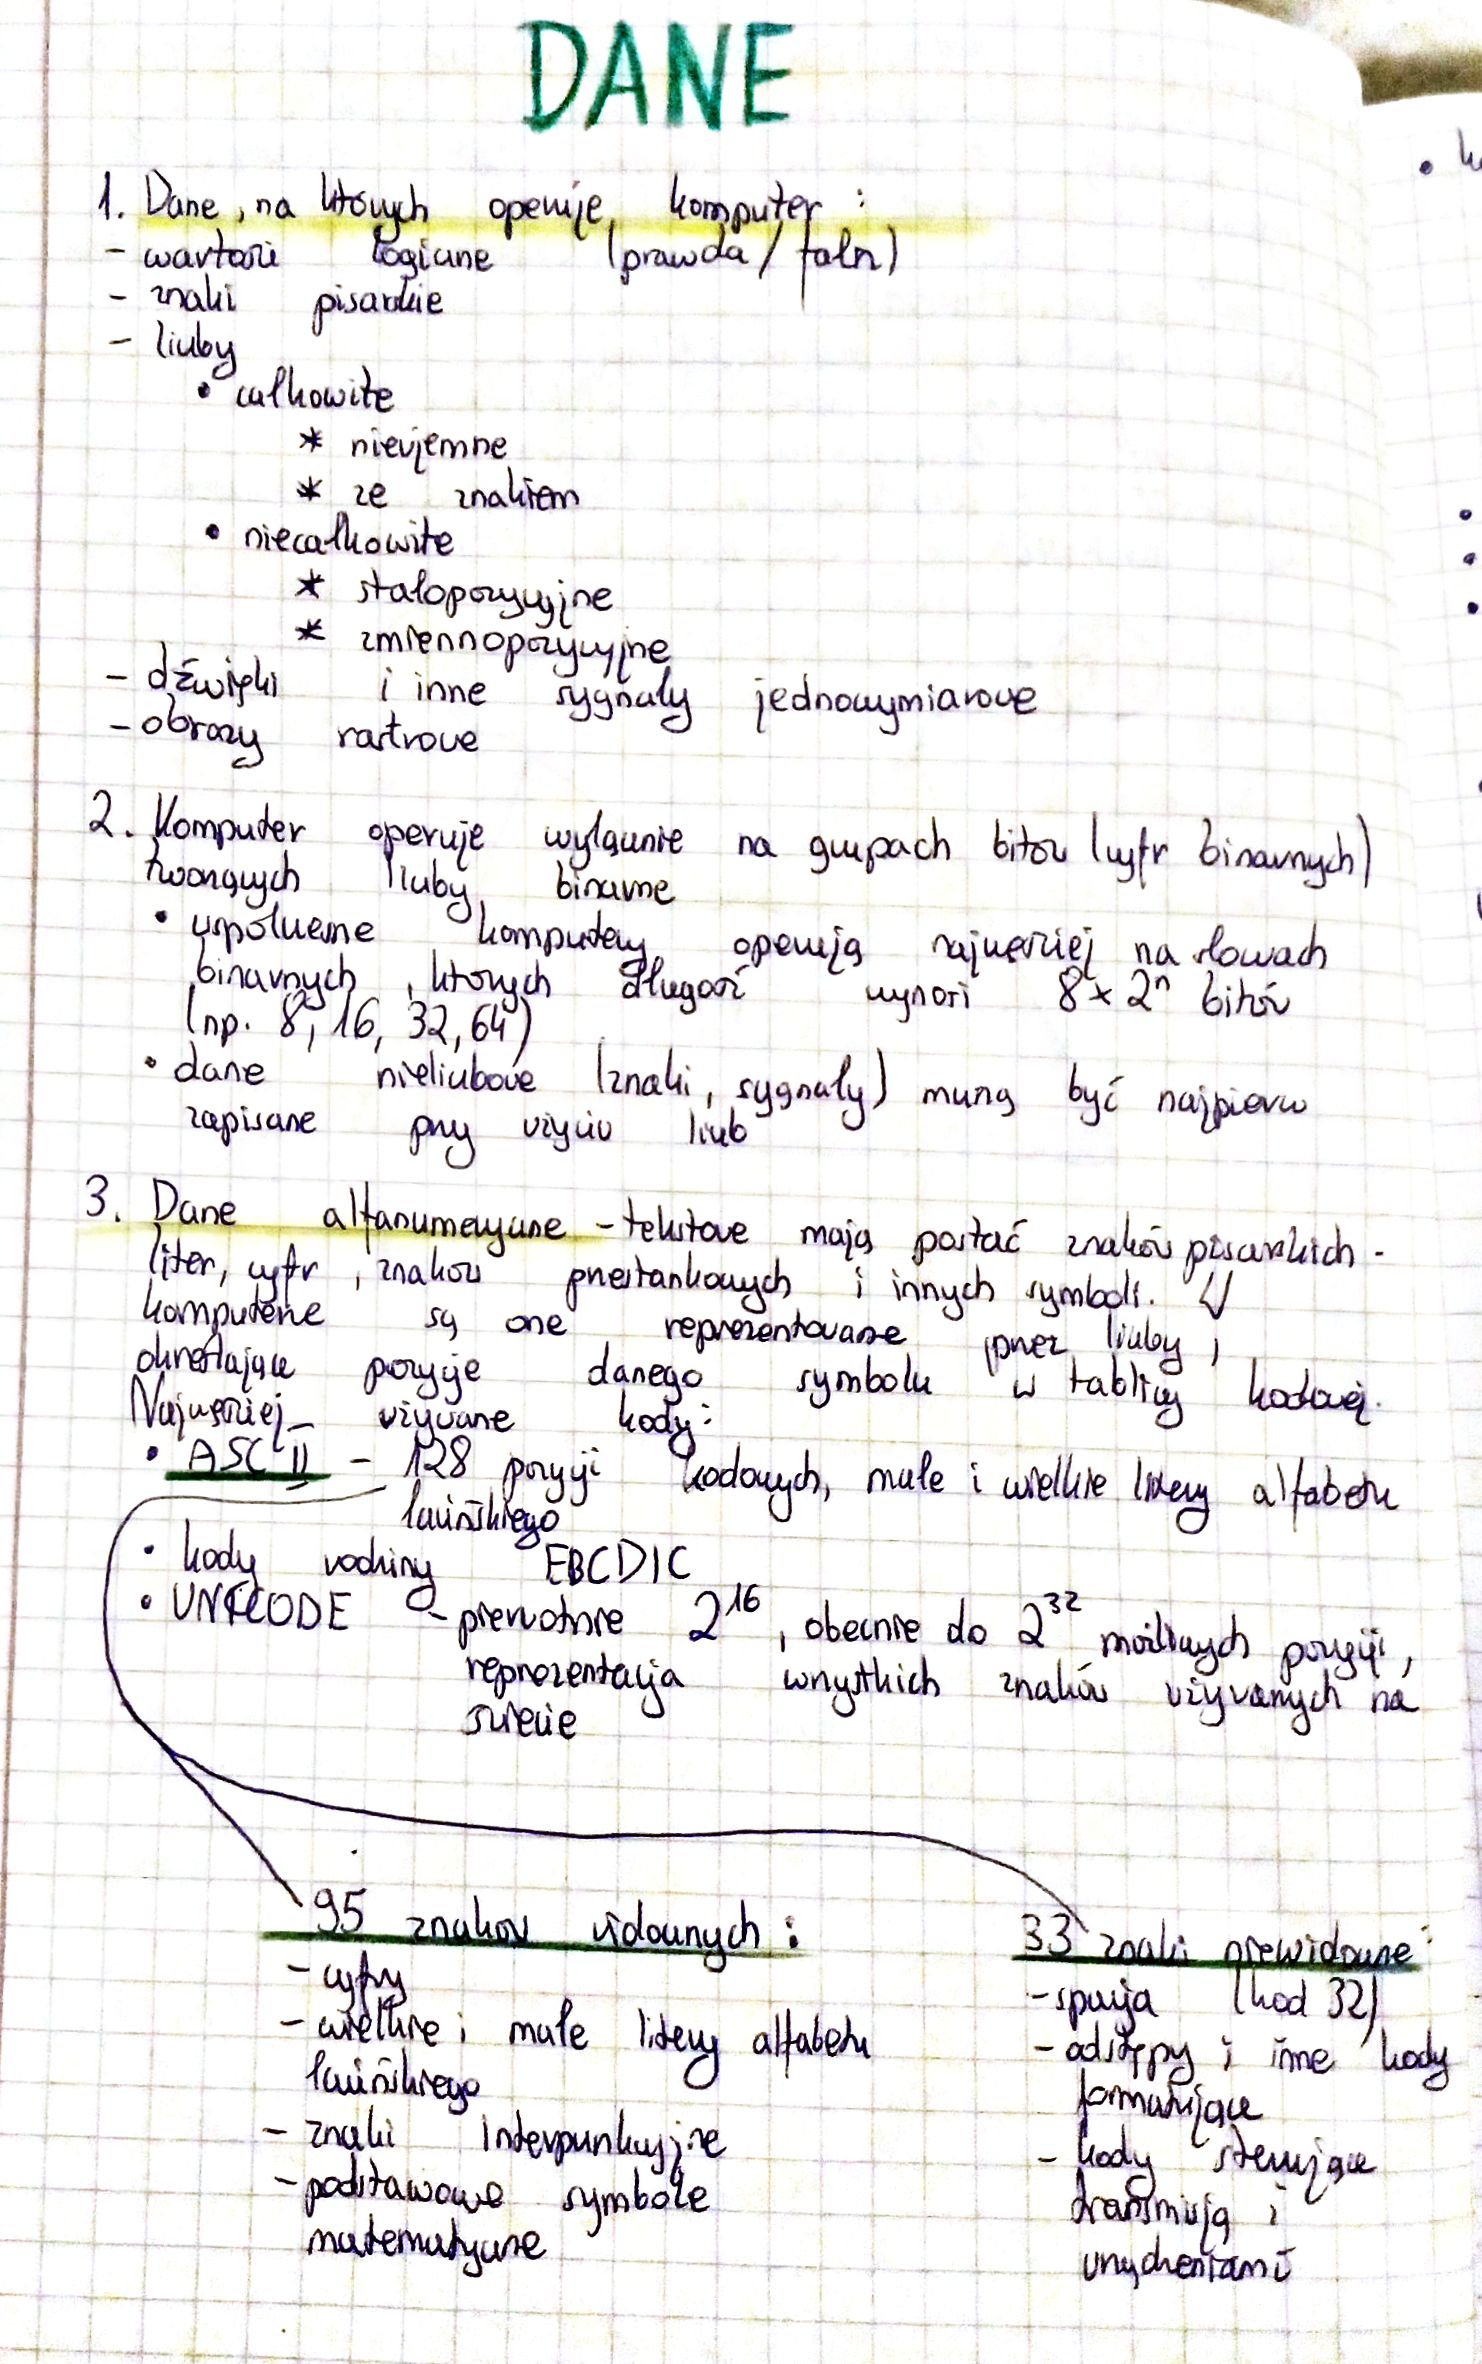 DANE
1. Dane, na których operuje komputer:
- wartości logiczne (prawda / fałsz)
- znaki pisarskie
- liczby
• całkowite
* nieujemne
* ze znakiem
• niecałkowite
* stałopozycyjne
* zmiennopozycyjne
- dźwięki i inne sygnały jednowymiarowe
- obrazy rastrowe
2. Komputer operuje wyłącznie na grupach bitów (cyfr binarnych)
tworzących liczby binarne
• współczesne komputery operują najczęściej na słowach
binarnych, których długość wynosi 8 × 2ⁿ bitów
(np. 8, 16, 32, 64)
• dane nieliczbowe (znaki, sygnały) muszą być najpierw
zapisane przy użyciu liczb
3. Dane alfanumeryczne - tekstowe mają postać znaków pisarskich -
liter, cyfr, znaków przestankowych i innych symboli. W
komputerze są one reprezentowane przez liczby,
określające pozycje danego symbolu w tablicy kodowej.
Najczęściej używane kody:
• ASCII - 128 pozycji kodowych, małe i wielkie litery alfabetu
łacińskiego
• kody rodziny EBCDIC
• UNICODE - pierwotnie 2¹⁶, obecnie do 2³² możliwych pozycji,
reprezentacja wszystkich znaków używanych na
świecie
95 znaków widocznych:
- cyfry
- wielkie i małe litery alfabetu
łacińskiego
- znaki interpunkcyjne
- podstawowe symbole
matematyczne
33 znaki niewidoczne:
- spacja (kod 32)
- odstępy i inne kody
formatujące
- kody sterujące
transmisją i
urządzeniami